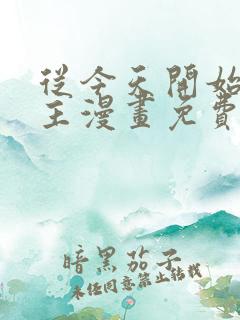 從今天開始
王漫畫免費
暗黑茄子
未經同意禁止轉載